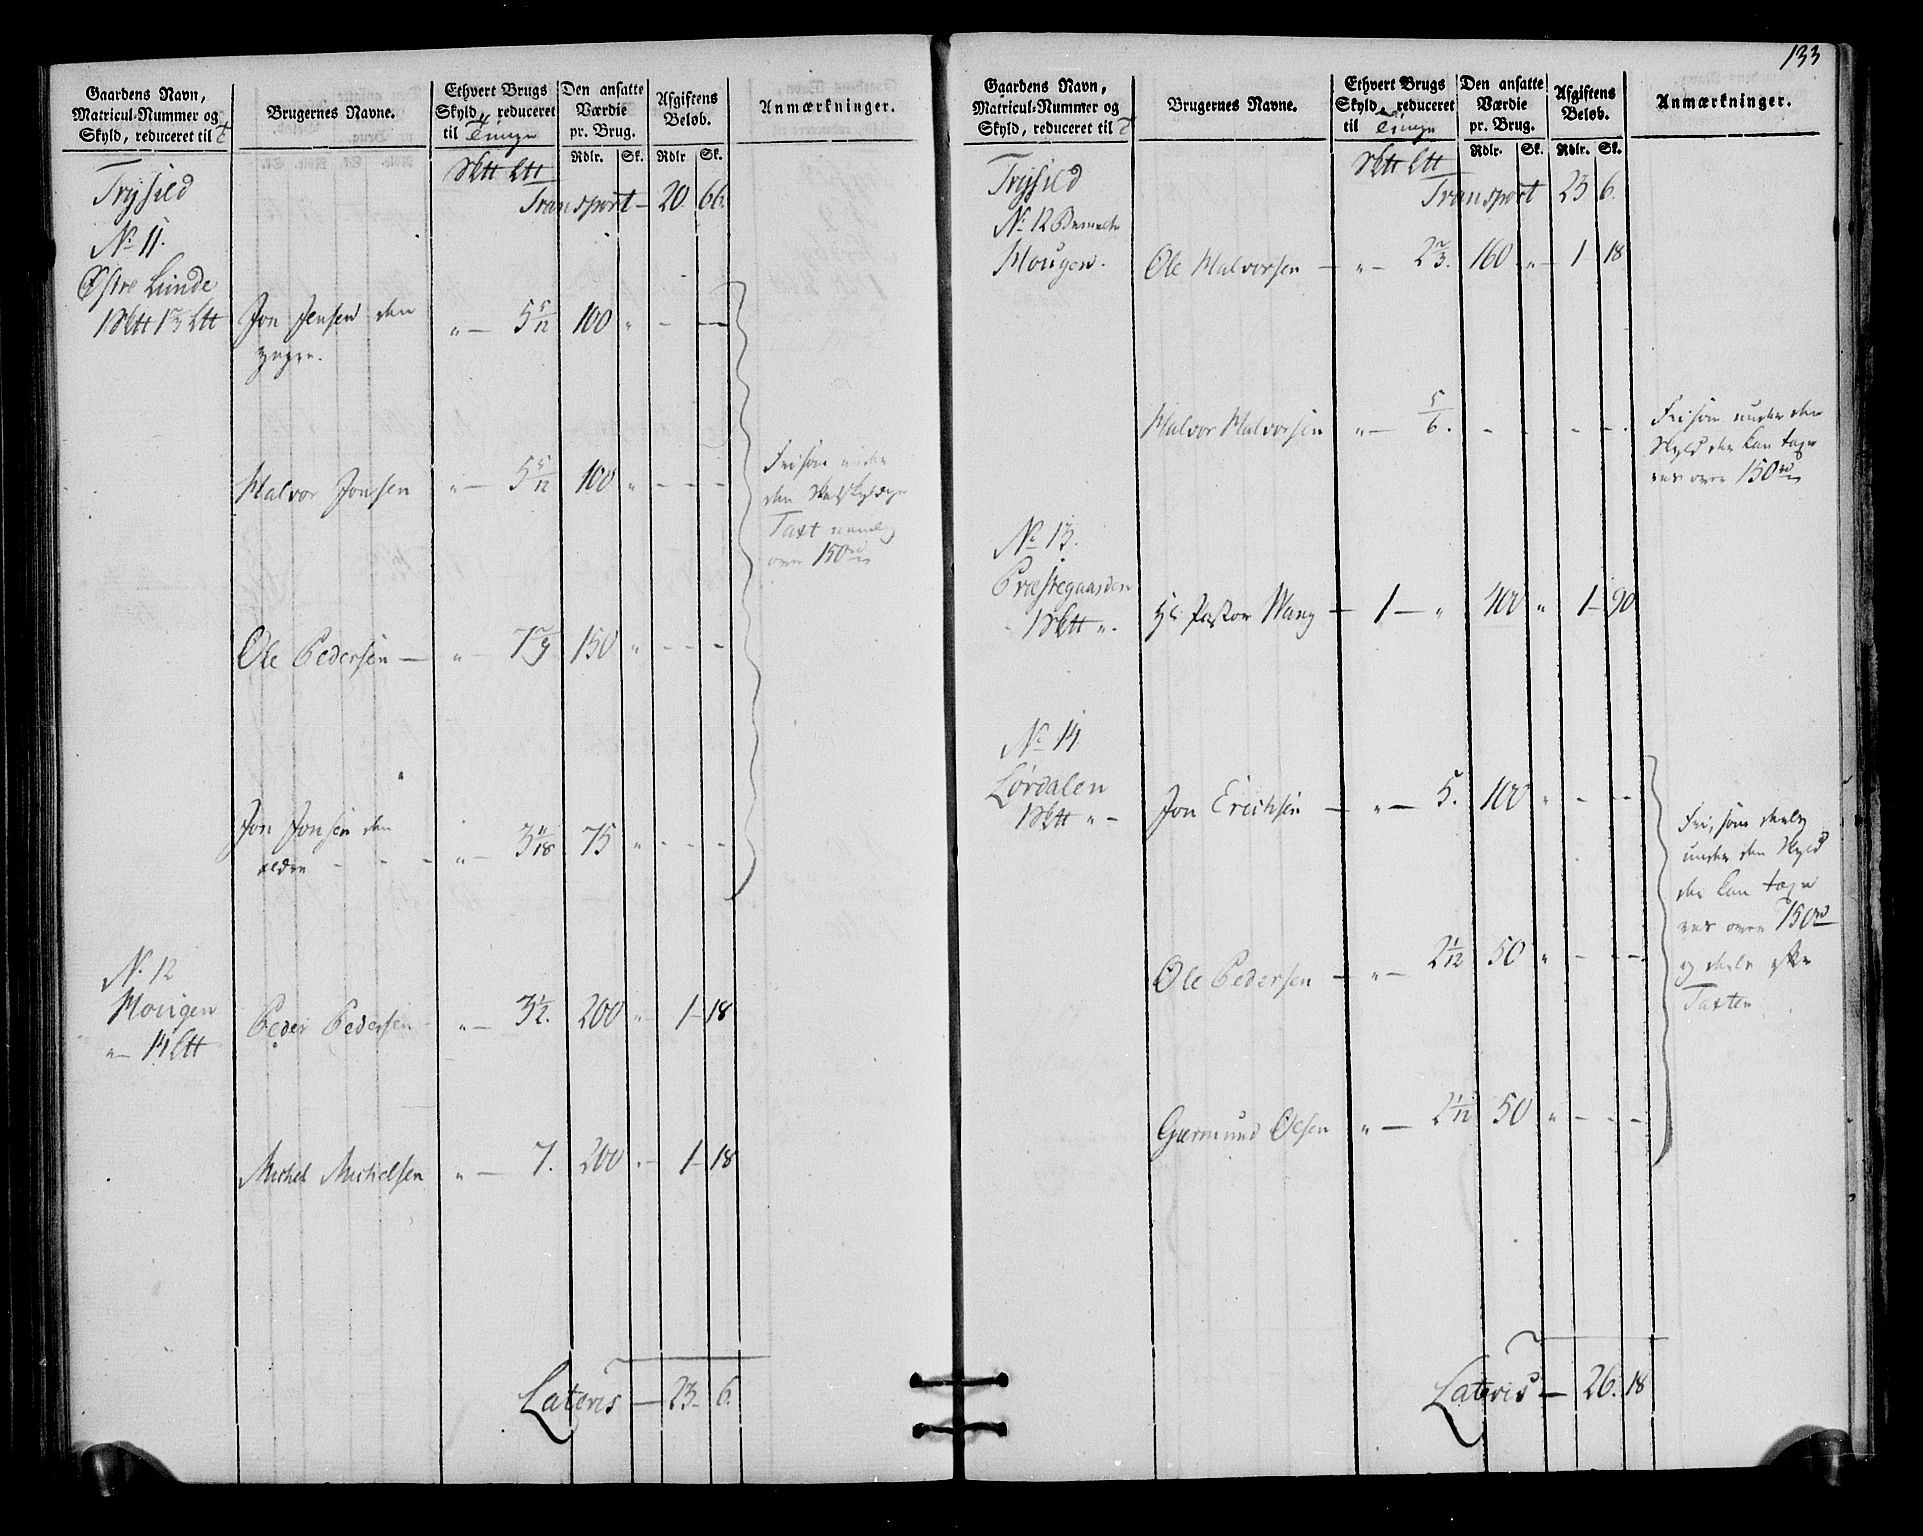 133
Gaardens Navn,
Matricul-Nummer og
Skyld, reduceret til
Brugernes Navne.
Ethvert Brugs
Skyld, reduceret
til Tunge
Den ansatte
Værdie
pr. Brug.
Afgiftens
Beløb.
Anmærkninger.
Rdlr. Sk. Rdlr Sk.
Trysild
Transport - 20. 66.
No 11.
Østre Lunde
Jon Jensen den yngre. " - 5 5/12 100 " - -
Halvor Jonsen " - 5 5/12 100 " - - -
Fri som under
den
Taxt nemlig
over 150 rd
Ole Pedersen - " - 7 150 " - - -
Jon Jonsen den
ældre - - - " - 3 11/18 75 " - - -
No 12
Mougen
" - 14 Ltt
Peder Pedersen " - 3 1/2. 200 " 1 - 18
Michel Michelsen " - 7. 200 " - 1 - 18
Lateris - 23 - 6.
Gaardens Navn,
Matricul-Nummer og
Skyld, reduceret til
Brugernes Navne.
Ethvert Brugs
Skyld, reduceret
til Tunge
Den ansatte
Værdie
pr. Brug.
Afgiftens
Beløb.
Anmærkninger.
Rdlr. Sk. Rdlr. Sk.
Trysild
Transport 23 6.
No 12 Bemelte
Mougen.
Ole Halvorsen - " - 2 2/3. 160 " - 1 18
Halvor Halvorsen " - 5/6. - - -
Fri som under den
Skyld der kan taxe
res over 150 rd
No 13.
Præstegaarden
Hr. Pastor Wang - 1 - " 400 " 1 - 90
No 14.
Lørdalen
Jon Erichsen - " - 5. 100 " - - -
Fri, som deels
under den Skyld
der kan taxe
res over 150 rd
og deels efter
Taxten
Ole Pedersen - " - 2 1/12 50 " - - -
Giermund Olsen " - 2 1/12 50 " - - -
Lateris - 26. 18